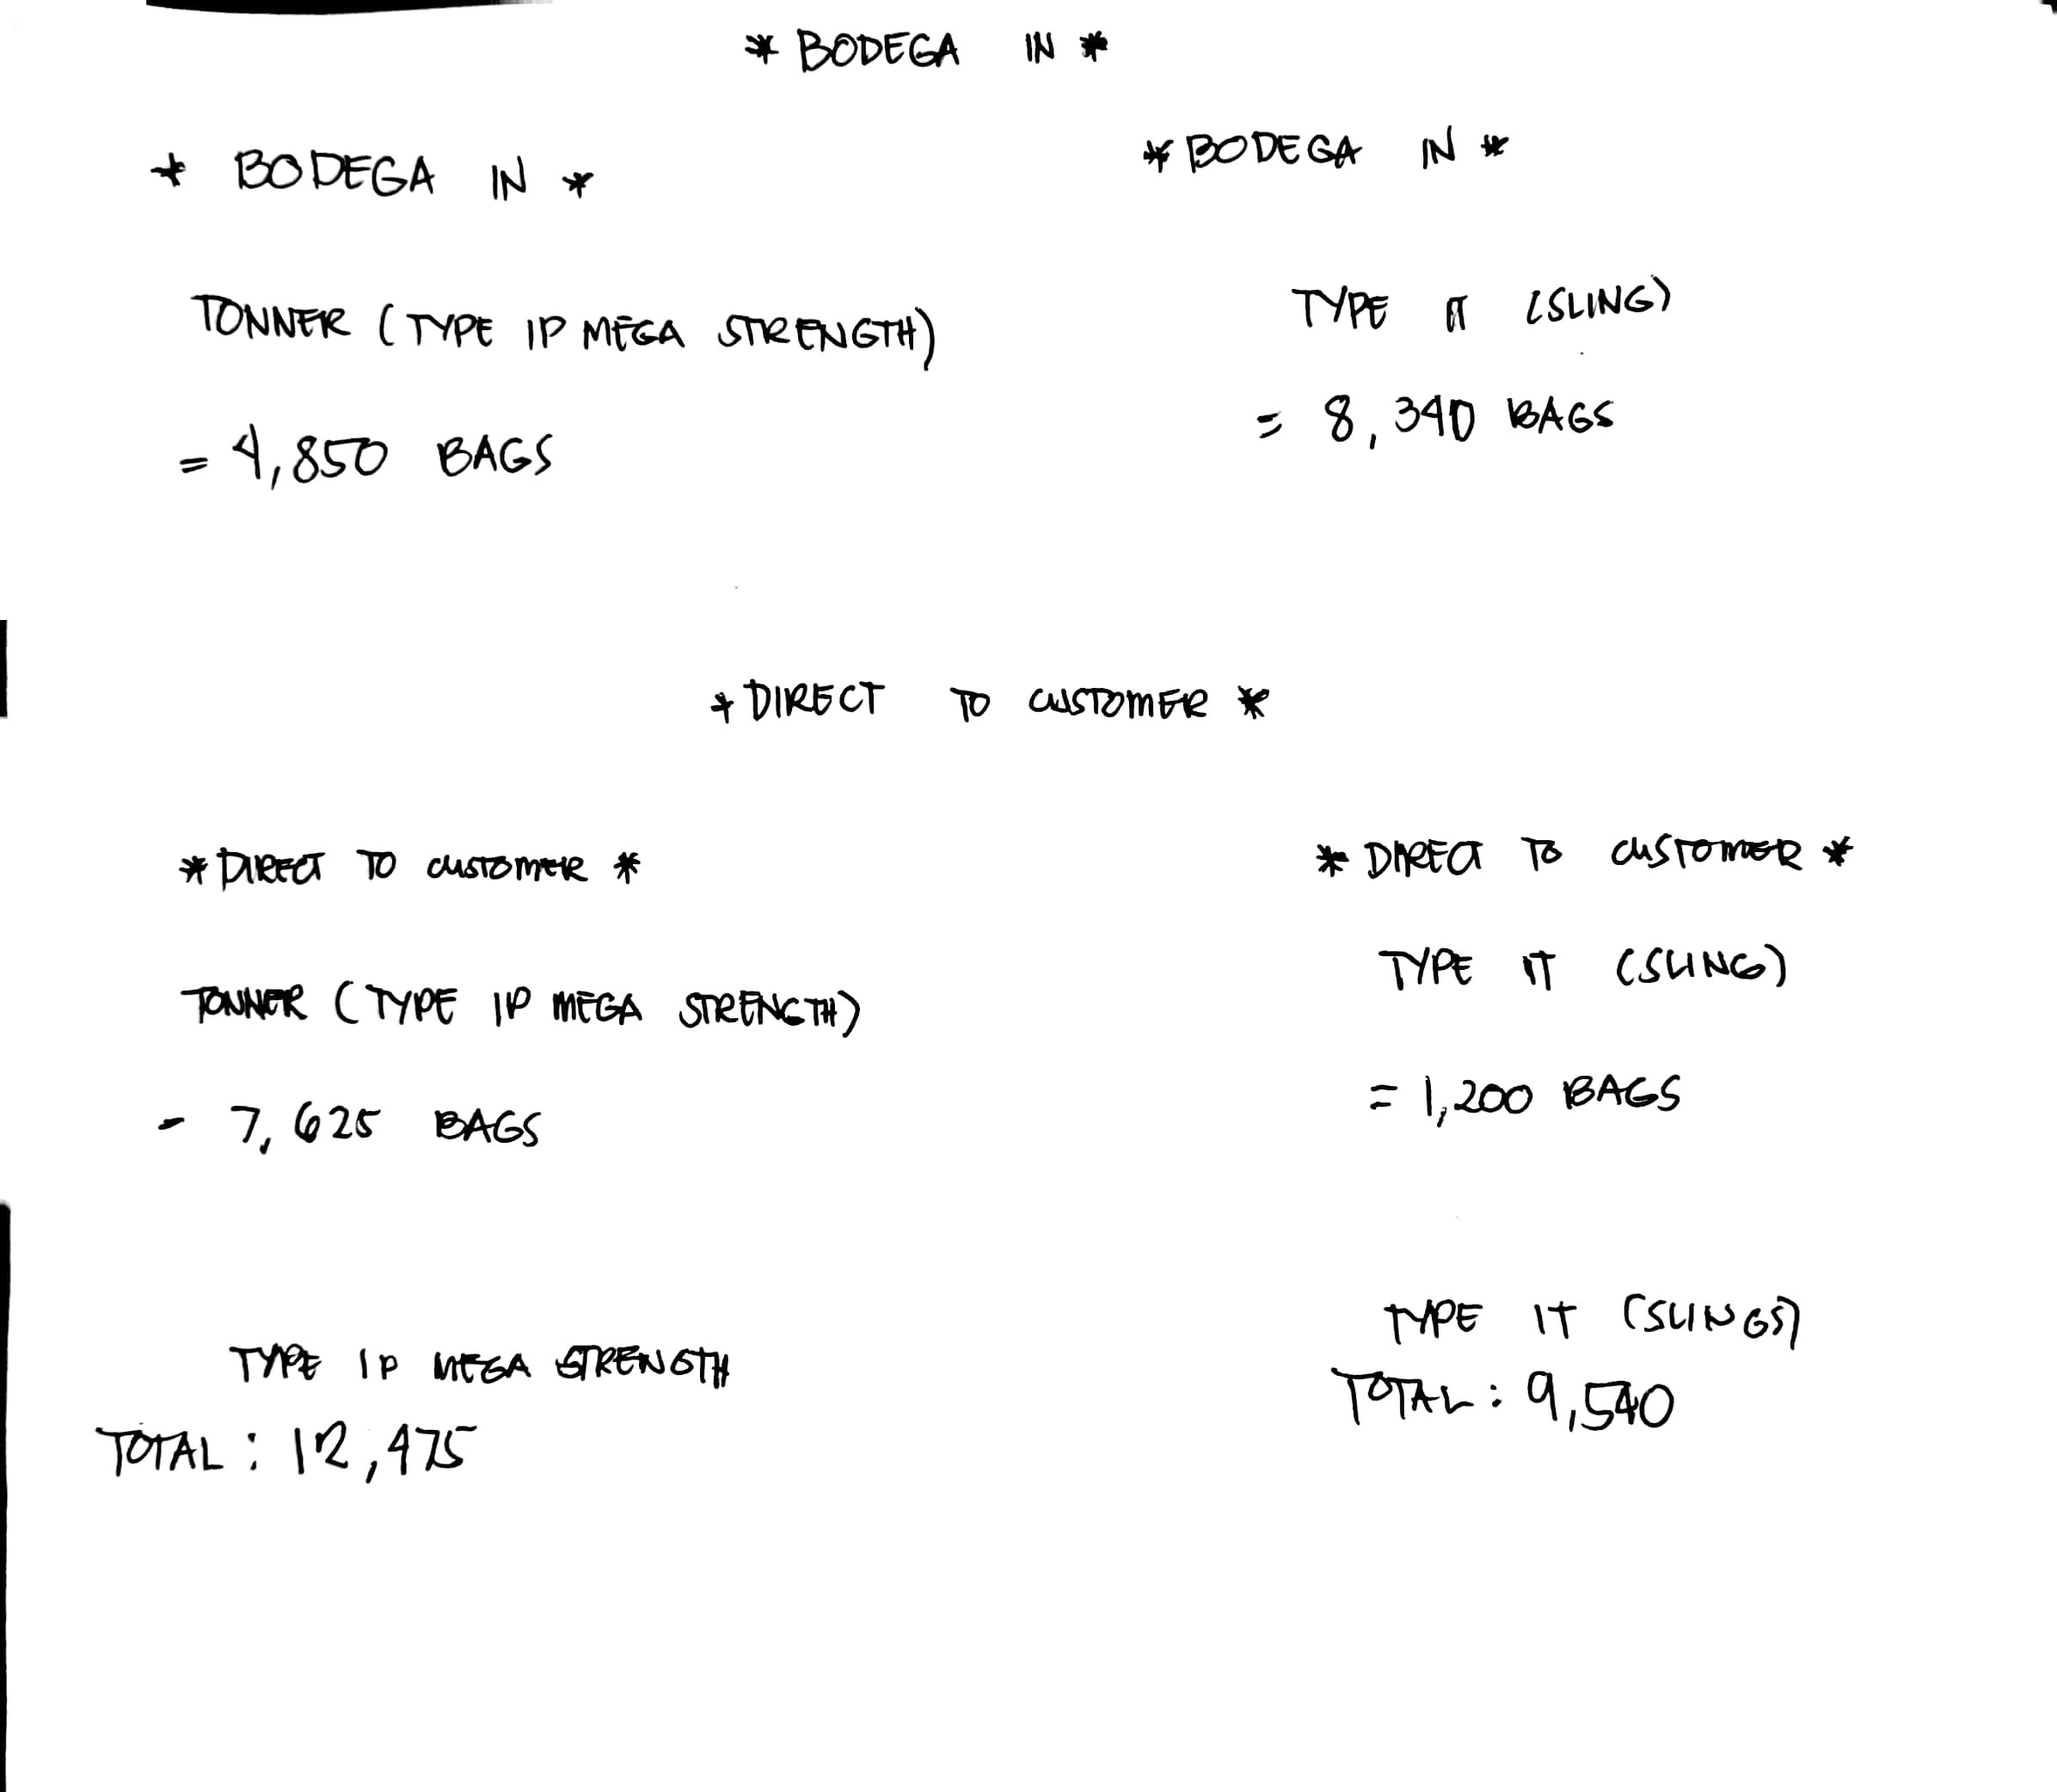 * BODEGA IN *
* BODEGA IN *
TONNER (TYPE IP MEGA STRENGTH)
= 4,850 BAGS
* BODEGA IN *
TYPE IT (SLING)
= 8,340 BAGS
* DIRECT TO CUSTOMER *
* DIRECT TO CUSTOMER *
TONNER (TYPE IP MEGA STRENGTH)
- 7,625 BAGS
* DIRECT TO CUSTOMER *
TYPE IT (SLING)
= 1,200 BAGS
TYPE IP MEGA STRENGTH
TOTAL : 12,475
TYPE IT (SLINGS)
TOTAL : 9,540